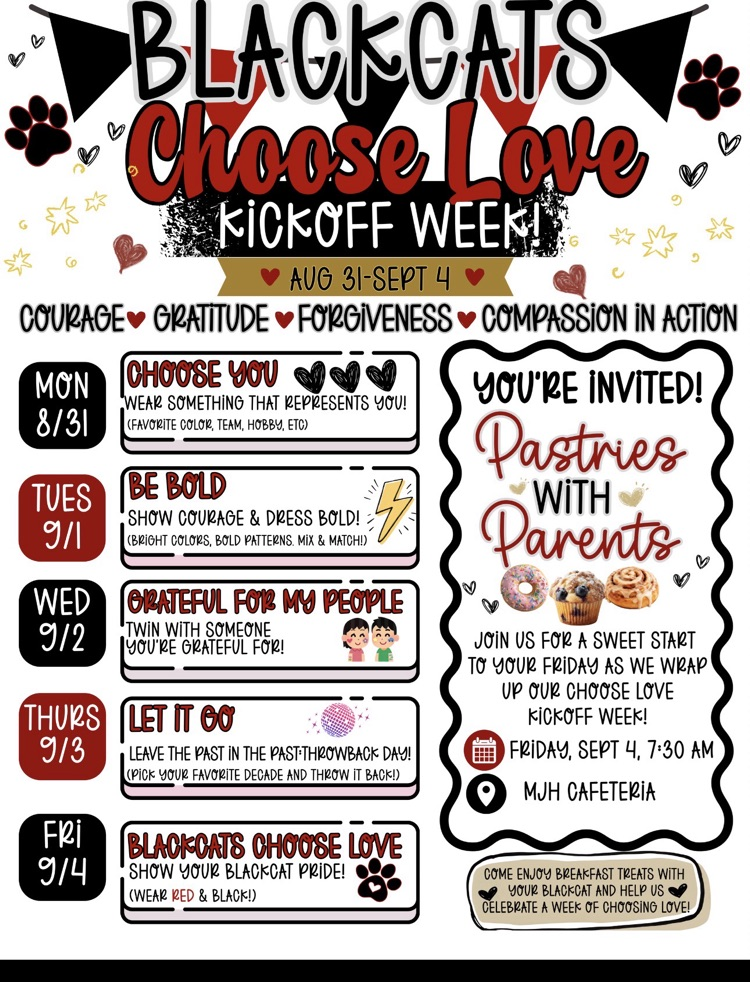 BLACKCATS
Choose Love
KICKOFF WEEK!
AUG 31-SEPT 4
COURAGE GRATITUDE FORGIVENESS COMPASSION IN ACTION
MON
8/31
CHOOSE YOU
WEAR SOMETHING THAT REPRESENTS YOU!
(FAVORITE COLOR, TEAM, HOBBY, ETC)
TUES
9/1
BE BOLD
SHOW COURAGE & DRESS BOLD!
(BRIGHT COLORS, BOLD PATTERNS. MIX & MATCH!)
WED
9/2
GRATEFUL FOR MY PEOPLE
TWIN WITH SOMEONE
YOU'RE GRATEFUL FOR!
THURS
9/3
LET IT GO
LEAVE THE PAST IN THE PAST-THROWBACK DAY!
(PICK YOUR FAVORITE DECADE AND THROW IT BACK!)
FRI
9/4
BLACKCATS CHOOSE LOVE
SHOW YOUR BLACKCAT PRIDE!
(WEAR RED & BLACK!)
YOU'RE INVITED!
Pastries
WITH
Parents
JOIN US FOR A SWEET START
TO YOUR FRIDAY AS WE WRAP
UP OUR CHOOSE LOVE
KICKOFF WEEK!
FRIDAY, SEPT 4, 7:30 AM
MJH CAFETERIA
COME ENJOY BREAKFAST TREATS WITH
YOUR BLACKCAT AND HELP US
CELEBRATE A WEEK OF CHOOSING LOVE!